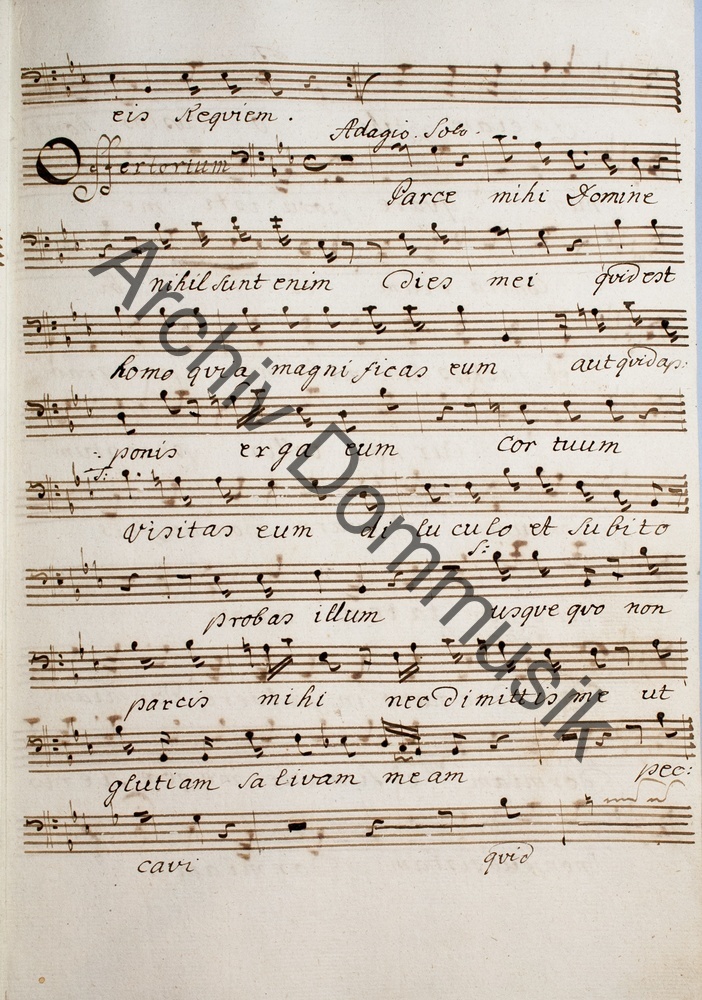 eis Requiem.
Adagio. Solo.
Offertorium
Parce mihi Domine
nihil sunt enim dies mei quid est
homo quia magni ficas eum aut quid ap:
ponis erga eum Cor tuum
S:
Visitas eum di lu culo et subito
S:
probas illum usque quo non
parcis mihi nec dimittis me ut
glutiam salivam meam pec:
cavi quid
Archiv Dommusik